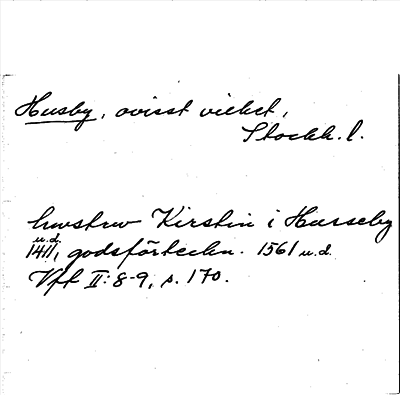 Husby, ovisst vilket,
Stockh. l.
hwstrw Kirstin i Husseby
u.d.
1411, godsförteckn. 1561 u.d.
Vfl II: 8-9, s. 170.